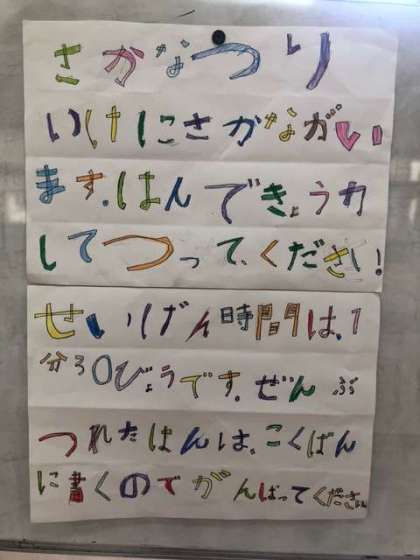 さかなつり
いけにさかながい
ます。はんできょうりょく
してつって、ください!
せいげん時間は、1
分30びょうです。ぜんぶ
つれたはんは、こくばん
に書くのでがんばってください